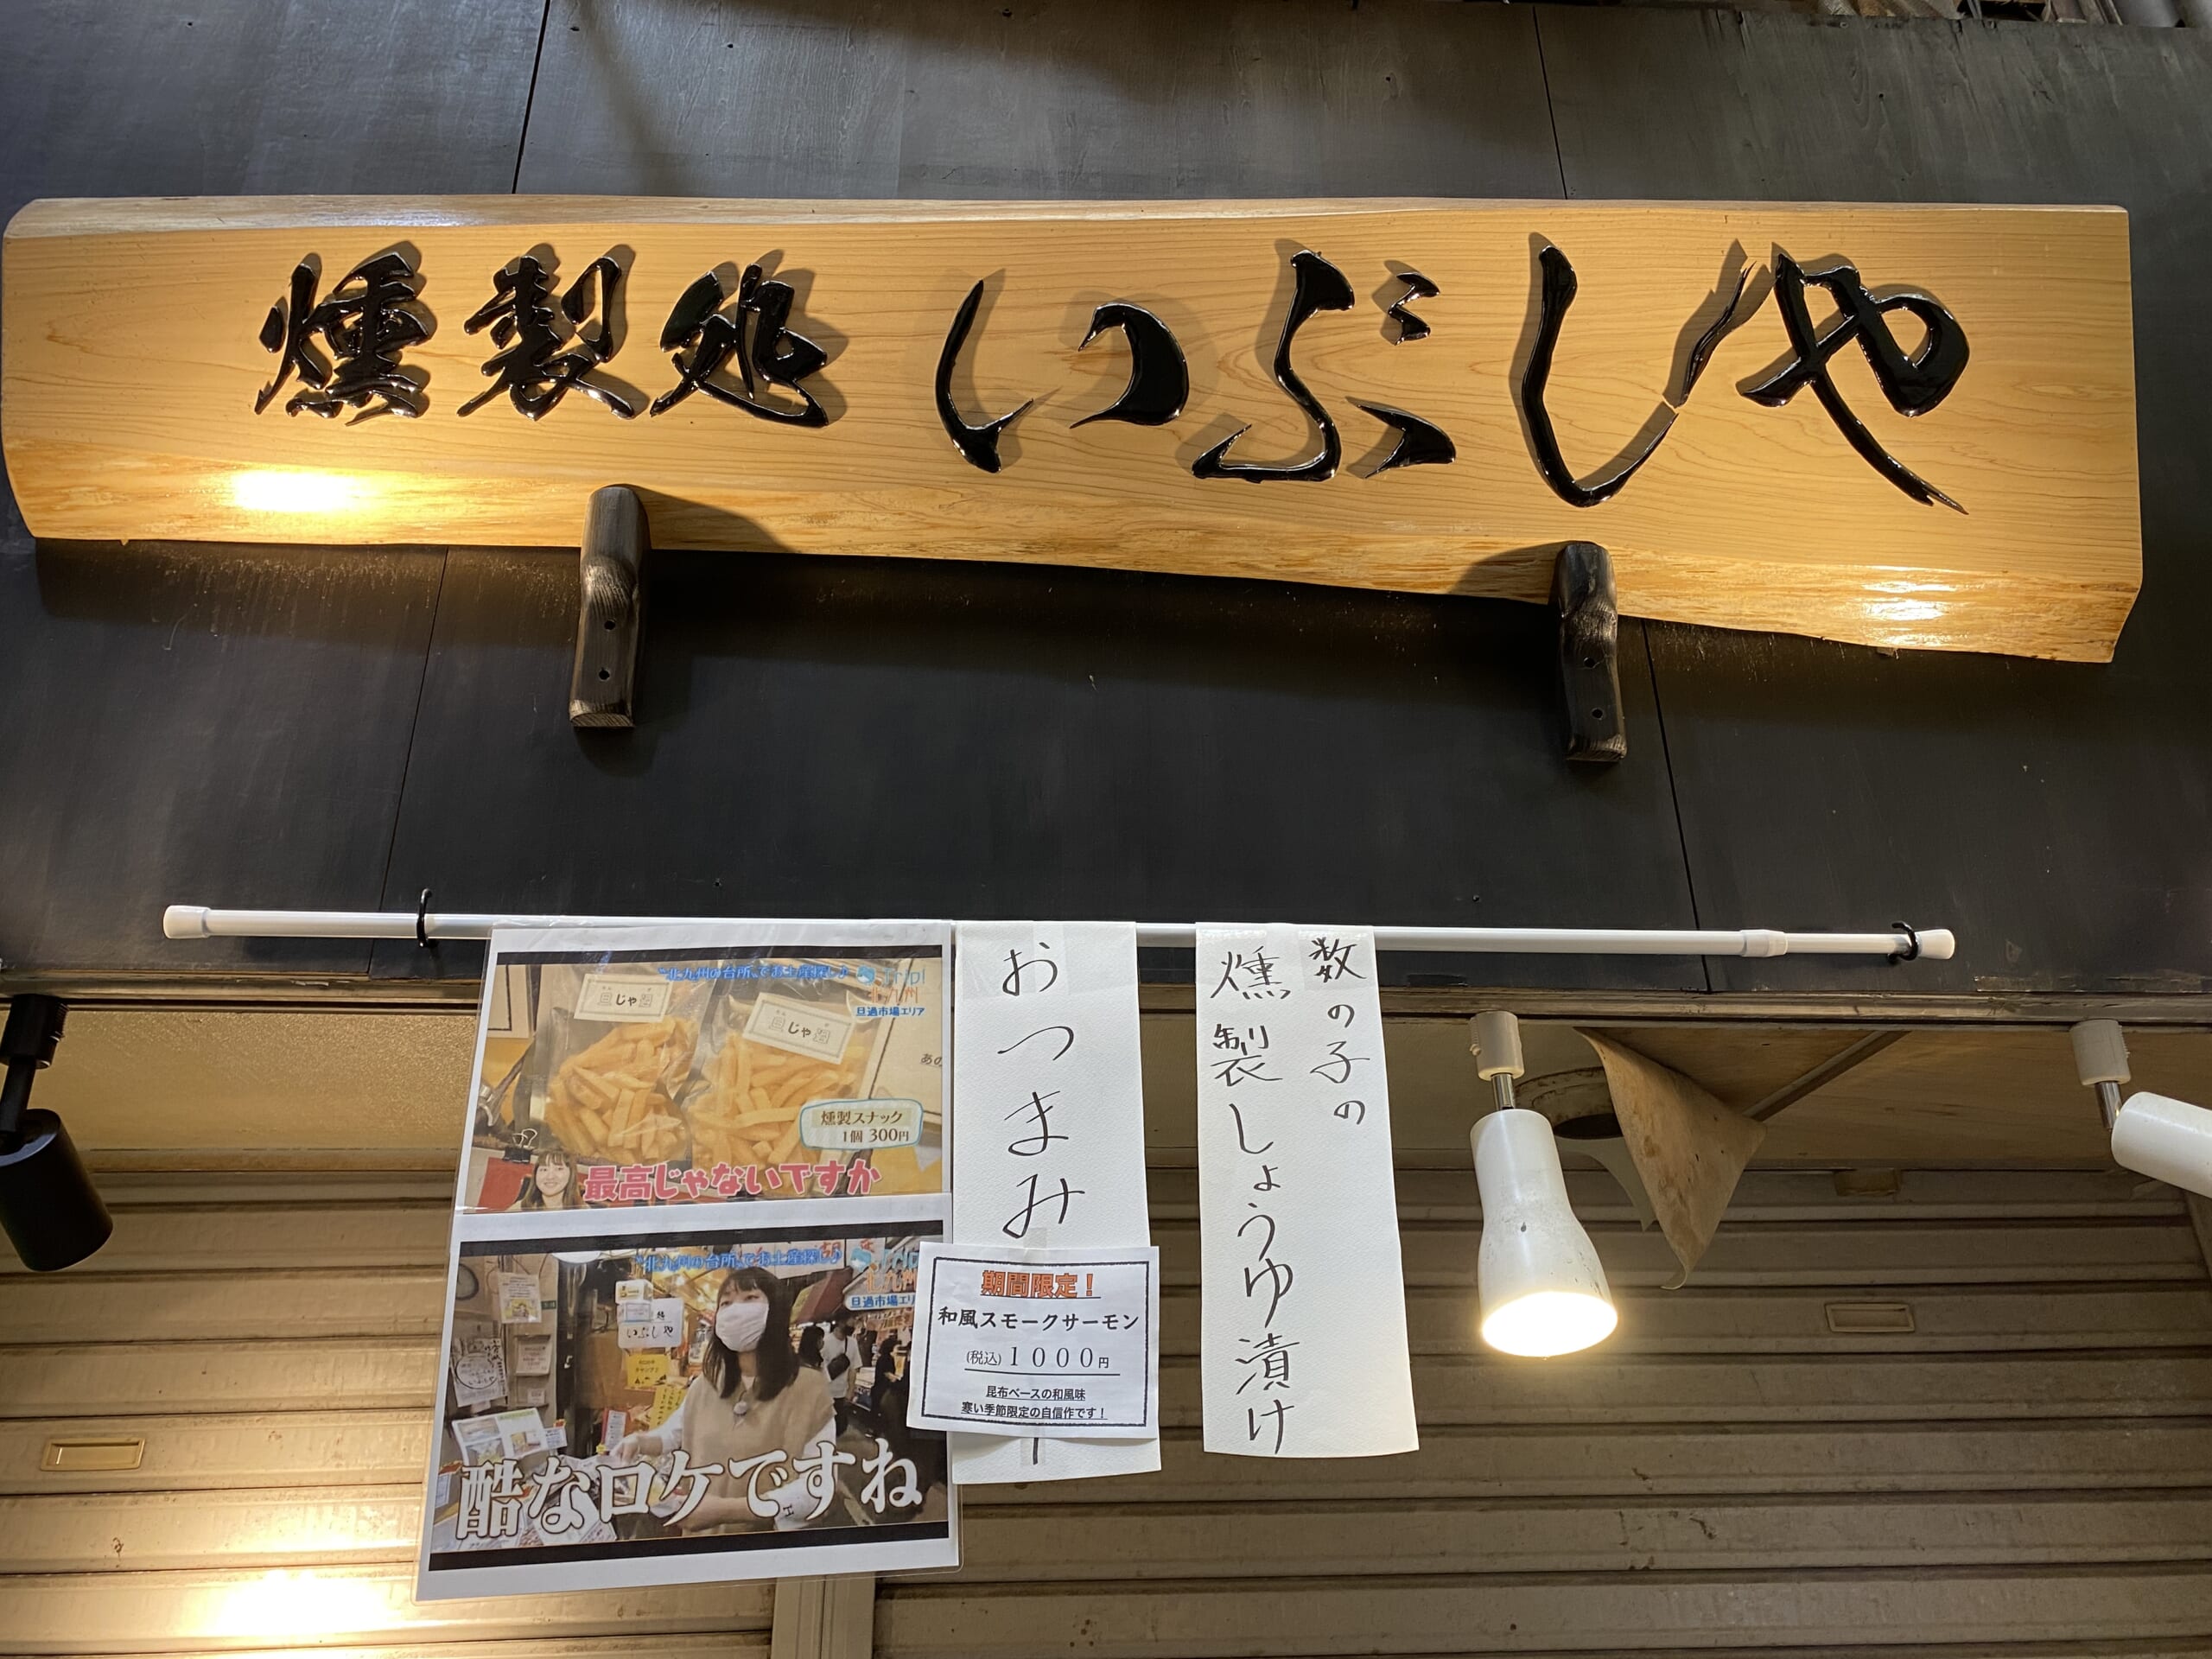 燻製処 いぶしや
"北九州の台所"でお土産探し♪
Trip!
北九州
旦過市場エリア
旦じゃ過
旦じゃ過
あの
燻製スナック
1個 300円
最高じゃないですか
"北九州の台所"でお土産探し♪
北九州
旦過市場エリ
いぶしや
酷なロケですね
おつまみ
期間限定！
和風スモークサーモン
(税込)１０００円
昆布ベースの和風味
寒い季節限定の自信作です！
数の子の
燻製しょうゆ漬け